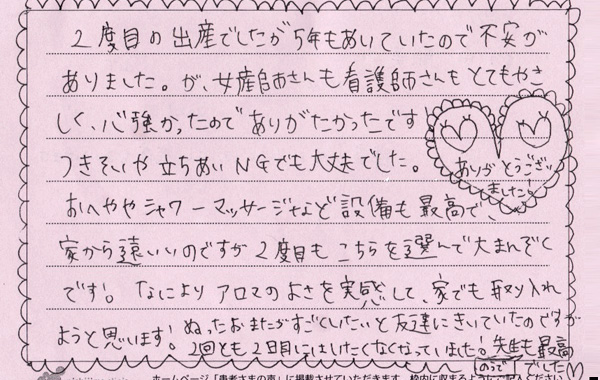 2度目の出産でしたが5年もあいていたので不安が
ありました。が、助産師さんも看護師さんもとてもやさ
しく、心強かったのでありがたかったです!
つきそいや立ちあいNGでも大丈夫でした。
ありがとうござい
ました!
おへややシャワーマッサージなど設備も最高で、
家から遠いいのですが2度目もこちらを選んで大まんぞく
です!。なによりアロマのよさを実感して、家でも取り入れ
ようと思います!ぬったおまたがすごくしたいと友達にきいていたのですが
2回とも2日目にはいたくなくなっていました!先生も最高
のって
でした
ホームページ「患者さまの声」に掲載させていただきます。枠内に収まるようご記入ください